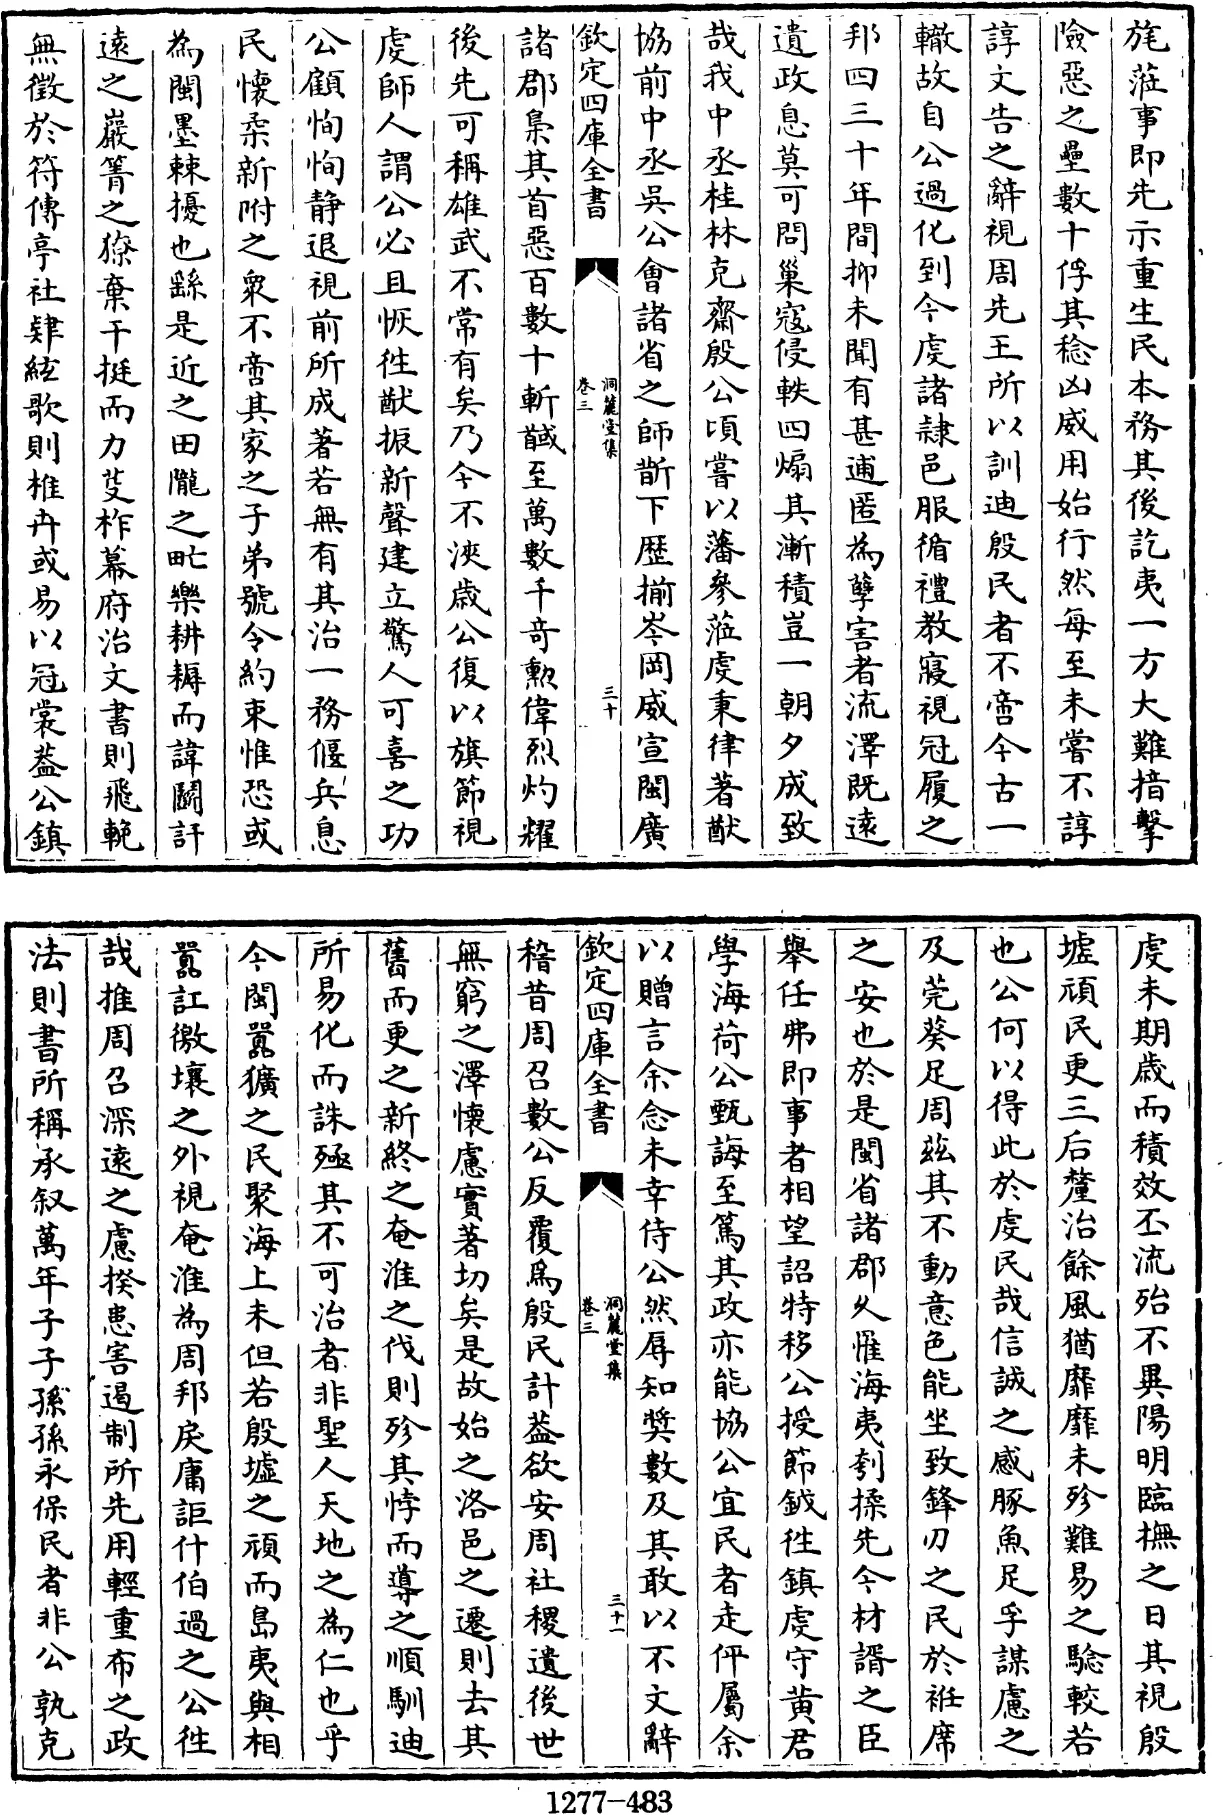 旄蒞事即先示重生民本務其後訖夷一方大難掊擊
險惡之壘數十俘其稔凶威用始行然每至未嘗不諄
諄文告之辭視周先王所以訓迪殷民者不啻今古一
轍故自公過化到今䖍諸隷邑服循禮教寢視冠履之
邦四三十年間抑未聞有甚逋匿為孽害者流澤既遠
遺政息莫可問巢寇侵軼四煽其漸積豈一朝夕成致
哉我中丞桂林克齋殷公頃嘗以藩參蒞䖍秉律著猷
協前中丞吳公會諸省之師斮下歴揃岑岡威宣閩廣
欽定四庫全書
洞麓堂集
卷三
三十
諸郡梟其首惡百數十斬馘至萬數千竒勲偉烈灼耀
後先可稱雄武不常有矣乃今不浹歲公復以旗節視
䖍師人謂公必且恢徃猷振新聲建立驚人可喜之功
公顧恂恂静退視前所成著若無有其治一務偃兵息
民懷柔新附之衆不啻其家之子弟號令約束惟恐或
為閩墨棘擾也繇是近之田隴之甿樂耕耨而諱鬬訐
遠之巖箐之獠棄干挺而力芟柞幕府治文書則飛輓
無徵於符傳亭社肄絃歌則椎冉或易以冠裳葢公鎮
䖍未期歳而積效丕流殆不異陽明臨撫之日其視殷
墟頑民更三后釐治餘風猶靡靡未殄難易之騐較若
也公何以得此於䖍民哉信誠之感豚魚足孚謀慮之
及莞葵足周茲其不動意色能坐致鋒刃之民於袵席
之安也於是閩省諸郡乆罹海夷刳揉先今材諝之臣
舉任弗即事者相望詔特移公授節鉞徃鎮䖍守黄君
學海荷公甄誨至篤其政亦能協公宜民者走伻屬余
以贈言余念未幸侍公然辱知奬數及其敢以不文辭
欽定四庫全書
洞麓堂集
卷三
三十一
稽昔周召數公反覆為殷民計葢欲安周社稷遺後世
無窮之澤懷慮實著切矣是故始之洛邑之遷則去其
舊而更之新終之奄淮之伐則殄其悖而導之順馴迪
所易化而誅殛其不可治者非聖人天地之為仁也乎
今閩嚚獷之民聚海上未但若殷墟之頑而島夷與相
嚚訌徼壤之外視奄淮為周邦戾庸詎什伯過之公徃
哉推周召深遠之慮揆患害遏制所先用輕重布之政
法則書所稱承叙萬年子子孫孫永保民者非公孰克
1277-483